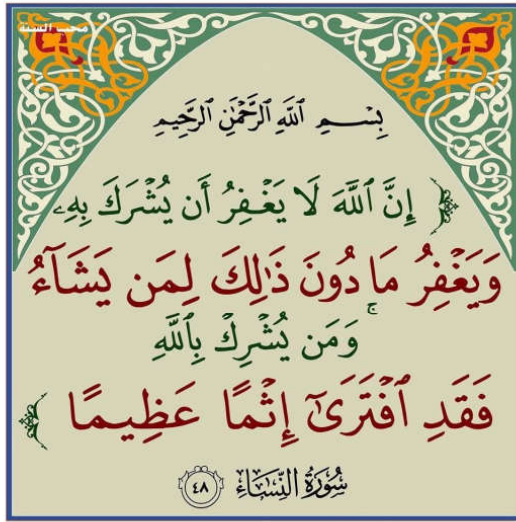 محب السنة
بِسْمِ ٱللَّهِ ٱلرَّحْمَٰنِ ٱلرَّحِيمِ
﴿ إِنَّ ٱللَّهَ لَا يَغْفِرُ أَن يُشْرَكَ بِهِۦ
وَيَغْفِرُ مَا دُونَ ذَٰلِكَ لِمَن يَشَآءُ ۚ
وَمَن يُشْرِكْ بِٱللَّهِ
فَقَدِ ٱفْتَرَىٰٓ إِثْمًا عَظِيمًا ﴾
سُورَةُ النِّسَاءِ ٤٨